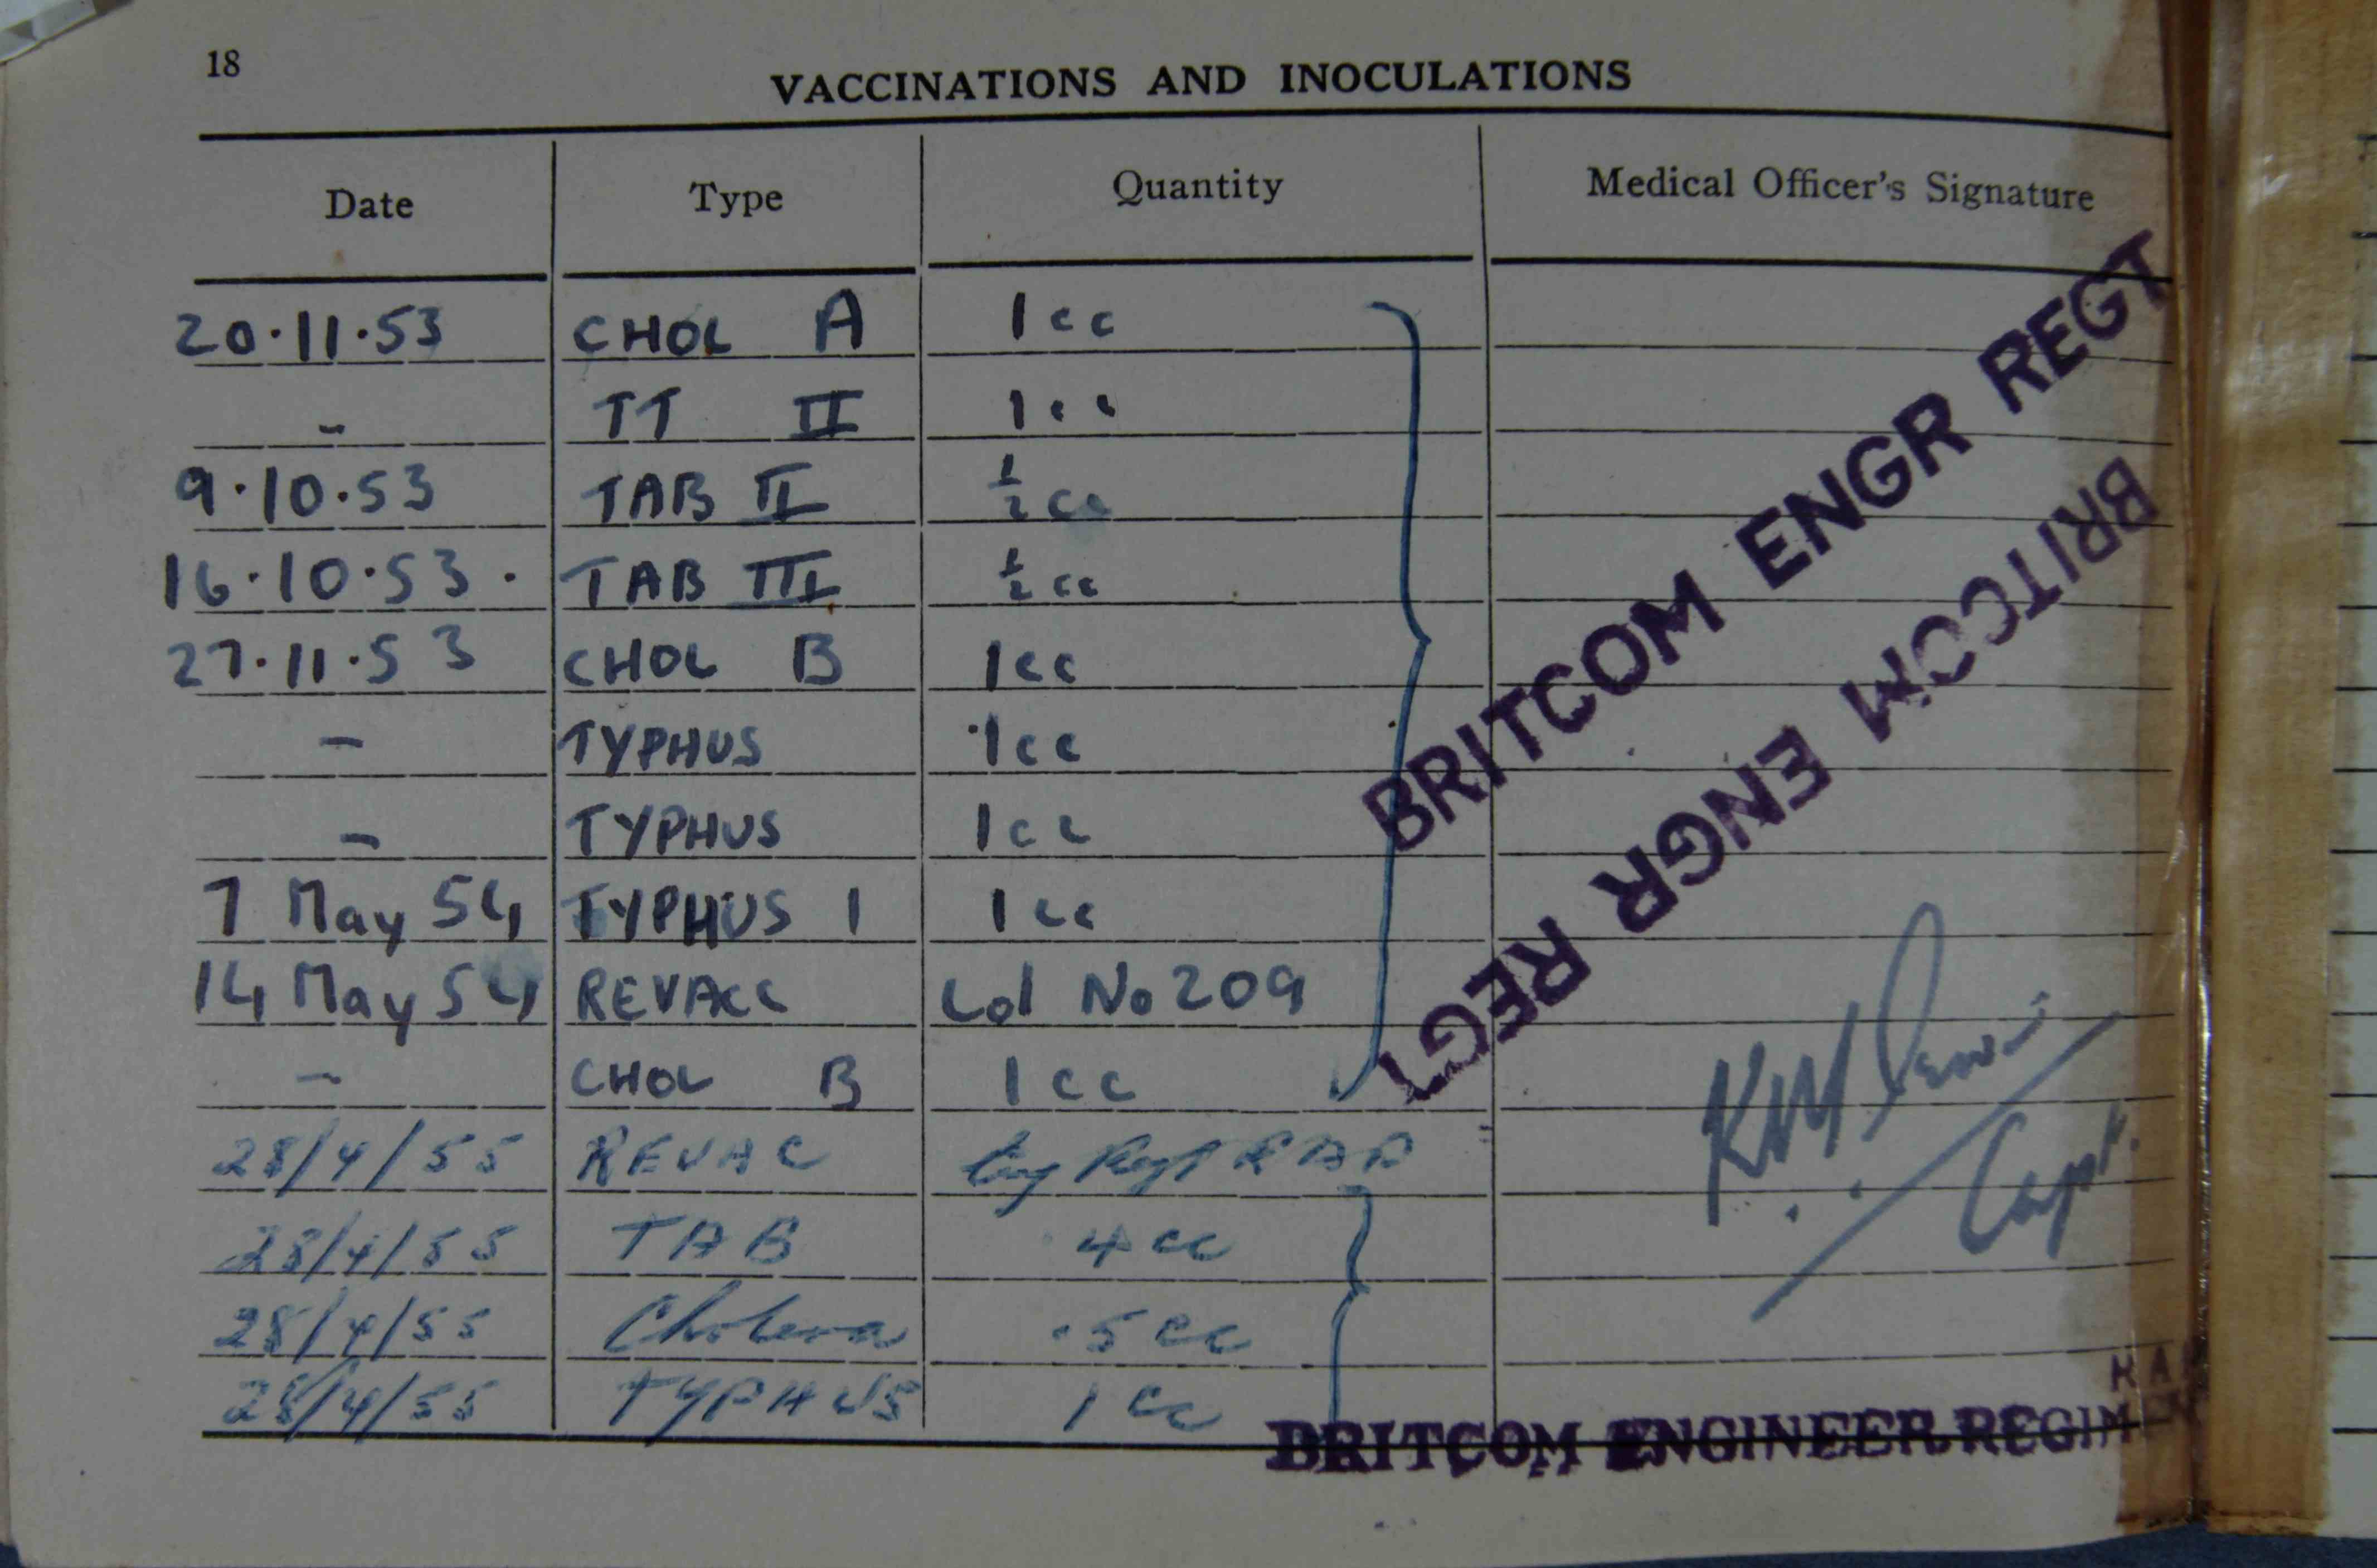 18
VACCINATIONS AND INOCULATIONS
Date Type Quantity Medical Officer's Signature
20.11.53 CHOL A 1cc
- TT II 1cc
9.10.53 TAB II ½cc
16.10.53. TAB III ½cc
27.11.53 CHOL B 1cc
- TYPHUS 1cc
- TYPHUS 1cc
7 May 54 TYPHUS 1 1cc
14 May 54 REVACC Lot No 209
- CHOL B 1cc
BRITCOM ENGR REGT
BRITCOM ENGR REGT
28/4/55 REVAC Regt
28/4/55 TAB .4cc
28/4/55 Cholera .5cc
28/4/55 TYPHUS 1cc
Capt.
BRITCOM ENGINEER REGIMENT